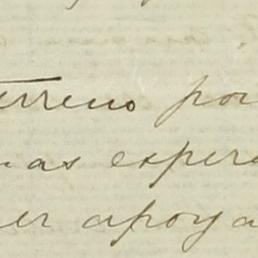 terreno por
mas exper
er apoya